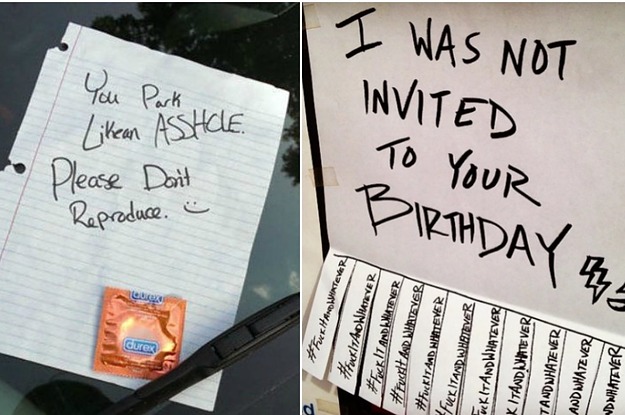 You Park
Likean ASSHOLE.
Please Don't
Reproduce.
durex
durex
I WAS NOT
INVITED
TO YOUR
BIRTHDAY
#FUCKITANDWHATEVER
#FUCKITANDWHATEVER
#FUCKITANDWHATEVER
#FUCKITANDWHATEVER
#FUCKITANDWHATEVER
FUCKITANDWHATEVER
CKITANDWHATEVER
ITANDWHATEVER
ANDWHATEVER
ANDWHATEVER
DWHATEVER